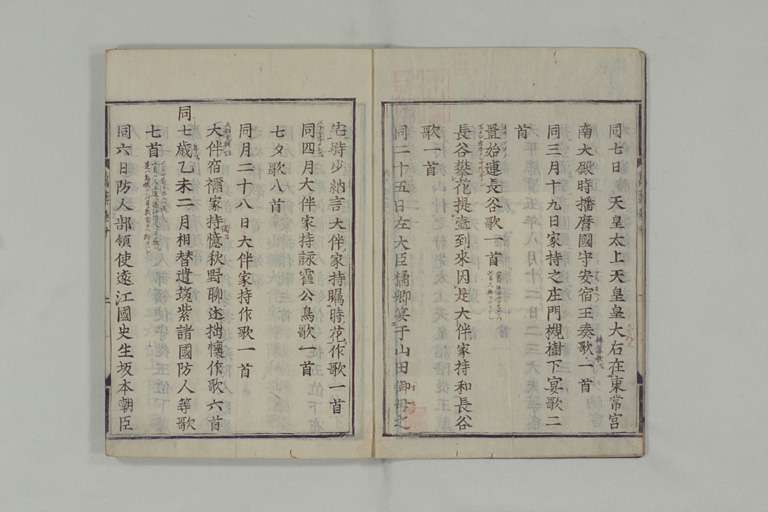 同七日 天皇太上天皇皇大后在東常宮
南大殿時播磨國守安宿王奏歌一首
同三月十九日家持之庄門槻樹下宴歌二
首
置始連長谷歌一首
長谷攀花提壺到來因是大伴家持和長谷
歌一首
同二十五日左大臣橘卿宴于山田御母之
宅時少納言大伴家持矚時花作歌一首
同四月大伴家持詠霍公鳥歌一首
七夕歌八首
同月二十八日大伴家持作歌一首
大伴宿禰家持憶秋野聊述拙懷作歌六首
同七歳乙未二月相替遣筑紫諸國防人等歌
七首
同六日防人部領使遠江國史生坂本朝臣